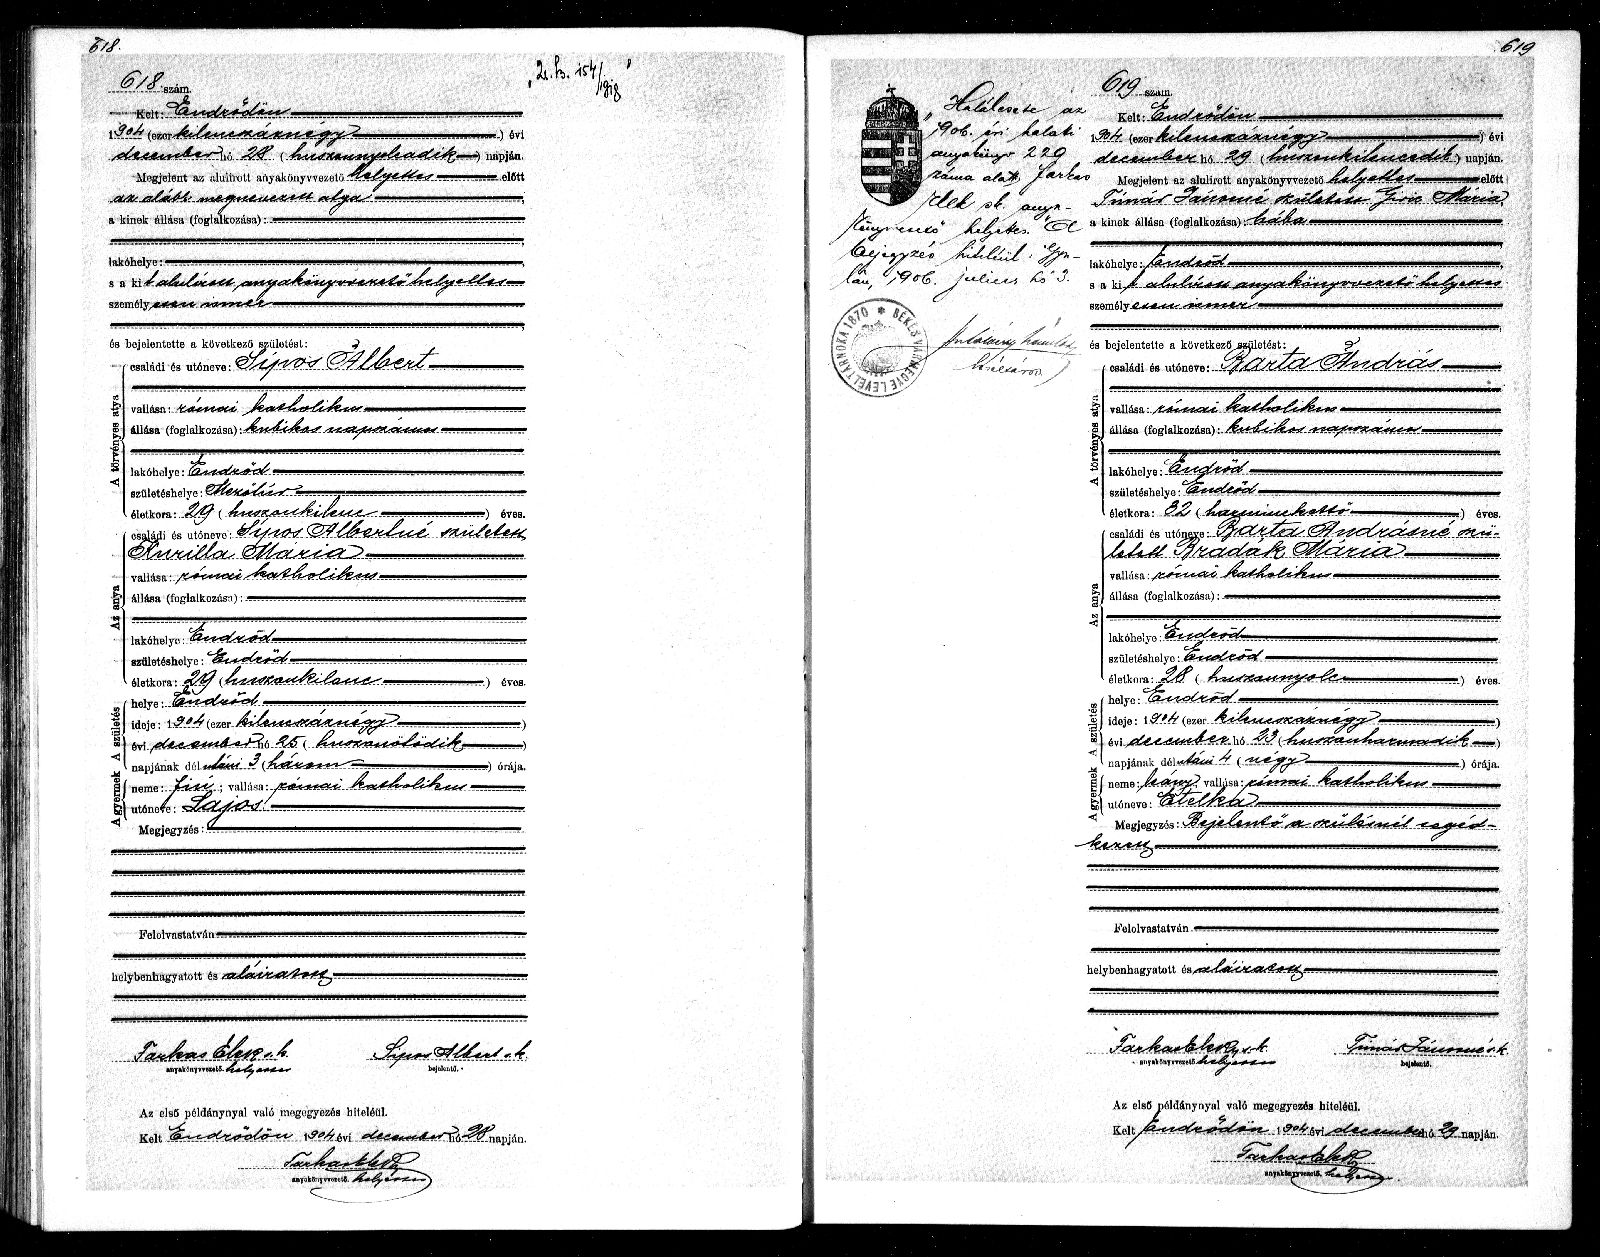 618.
618 szám.
„2. b. 154/
1918"
Kelt: Endrődön
1904 (ezer kilenczáznégy) évi
december hó 28 (huszonnyolcadik) napján.
Megjelent az alulirott anyakönyvvezető helyettes előtt
az alább megnevezett atya
a kinek állása (foglalkozása):
lakóhelye:
s a kit alulirott anyakönyvvezető helyettes
személyesen ismer
és bejelentette a következő születést:
A törvényes atya
családi és utóneve: Sipos Albert
vallása: római katholikus
állása (foglalkozása): kubikos napszámos
lakóhelye: Endrőd
születéshelye: Mezőtúr
életkora: 29 (huszonkilenc) éves.
Az anya
családi és utóneve: Sipos Albertné született
Kurilla Mária
vallása: római katholikus
állása (foglalkozása):
lakóhelye: Endrőd
születéshelye: Endrőd
életkora: 29 (huszonkilenc) éves.
A születés
helye: Endrőd
ideje: 1904 (ezer kilenczáznégy)
évi december hó 25 (huszonötödik)
napjának délutáni 3 (három) órája.
A gyermek
neme: fiú; vallása: római katholikus
utóneve: Lajos
Megjegyzés:
Felolvastatván
helybenhagyatott és aláiratott
Farkas Elek s. k. Sipos Albert s. k.
anyakönyvvezető. helyettes bejelentő.
Az első példánynyal való megegyezés hiteléül.
Kelt Endrődön 1904 évi december hó 28 napján.
Farkas Elek
anyakönyvvezető. helyettes
619
619 szám.
„Halálesete az
1906. évi halotti
anyakönyv 229
száma alatt. Farkas
Elek sk. anya-
könyvvezető helyettes." A
bejegyzés hiteléül. Gyu-
lán, 1906. julius hó 3.
BÉKÉS VÁRMEGYE LEVÉLTÁRNOKA 1870
Kelt: Endrődön
1904 (ezer kilenczáznégy) évi
december hó 29 (huszonkilencedik) napján.
Megjelent az alulirott anyakönyvvezető helyettes előtt
Timár Jánosné született Giri Mária,
a kinek állása (foglalkozása): bába
lakóhelye: Endrőd
s a kit alulirott anyakönyvvezető helyettes
személyesen ismer
és bejelentette a következő születést:
A törvényes atya
családi és utóneve: Barta András
vallása: római katholikus
állása (foglalkozása): kubikos napszámos
lakóhelye: Endrőd
születéshelye: Endrőd
életkora: 32 (harminckettő) éves.
Az anya
családi és utóneve: Barta Andrásné szü-
letett Bradák Mária
vallása: római katholikus
állása (foglalkozása):
lakóhelye: Endrőd
születéshelye: Endrőd
életkora: 28 (huszonnyolc) éves.
A születés
helye: Endrőd
ideje: 1904 (ezer kilenczáznégy)
évi december hó 23 (huszonharmadik)
napjának délutáni 4 (négy) órája.
A gyermek
neme: leány; vallása: római katholikus
utóneve: Etelka
Megjegyzés: Bejelentő a szülésnél segéd-
kezett
Felolvastatván
helybenhagyatott és aláiratott
Farkas Elek s. k. Timár Jánosné s. k.
anyakönyvvezető. helyettes bejelentő.
Az első példánynyal való megegyezés hiteléül.
Kelt Endrődön 1904 évi december hó 29 napján.
Farkas Elek
anyakönyvvezető. helyettes